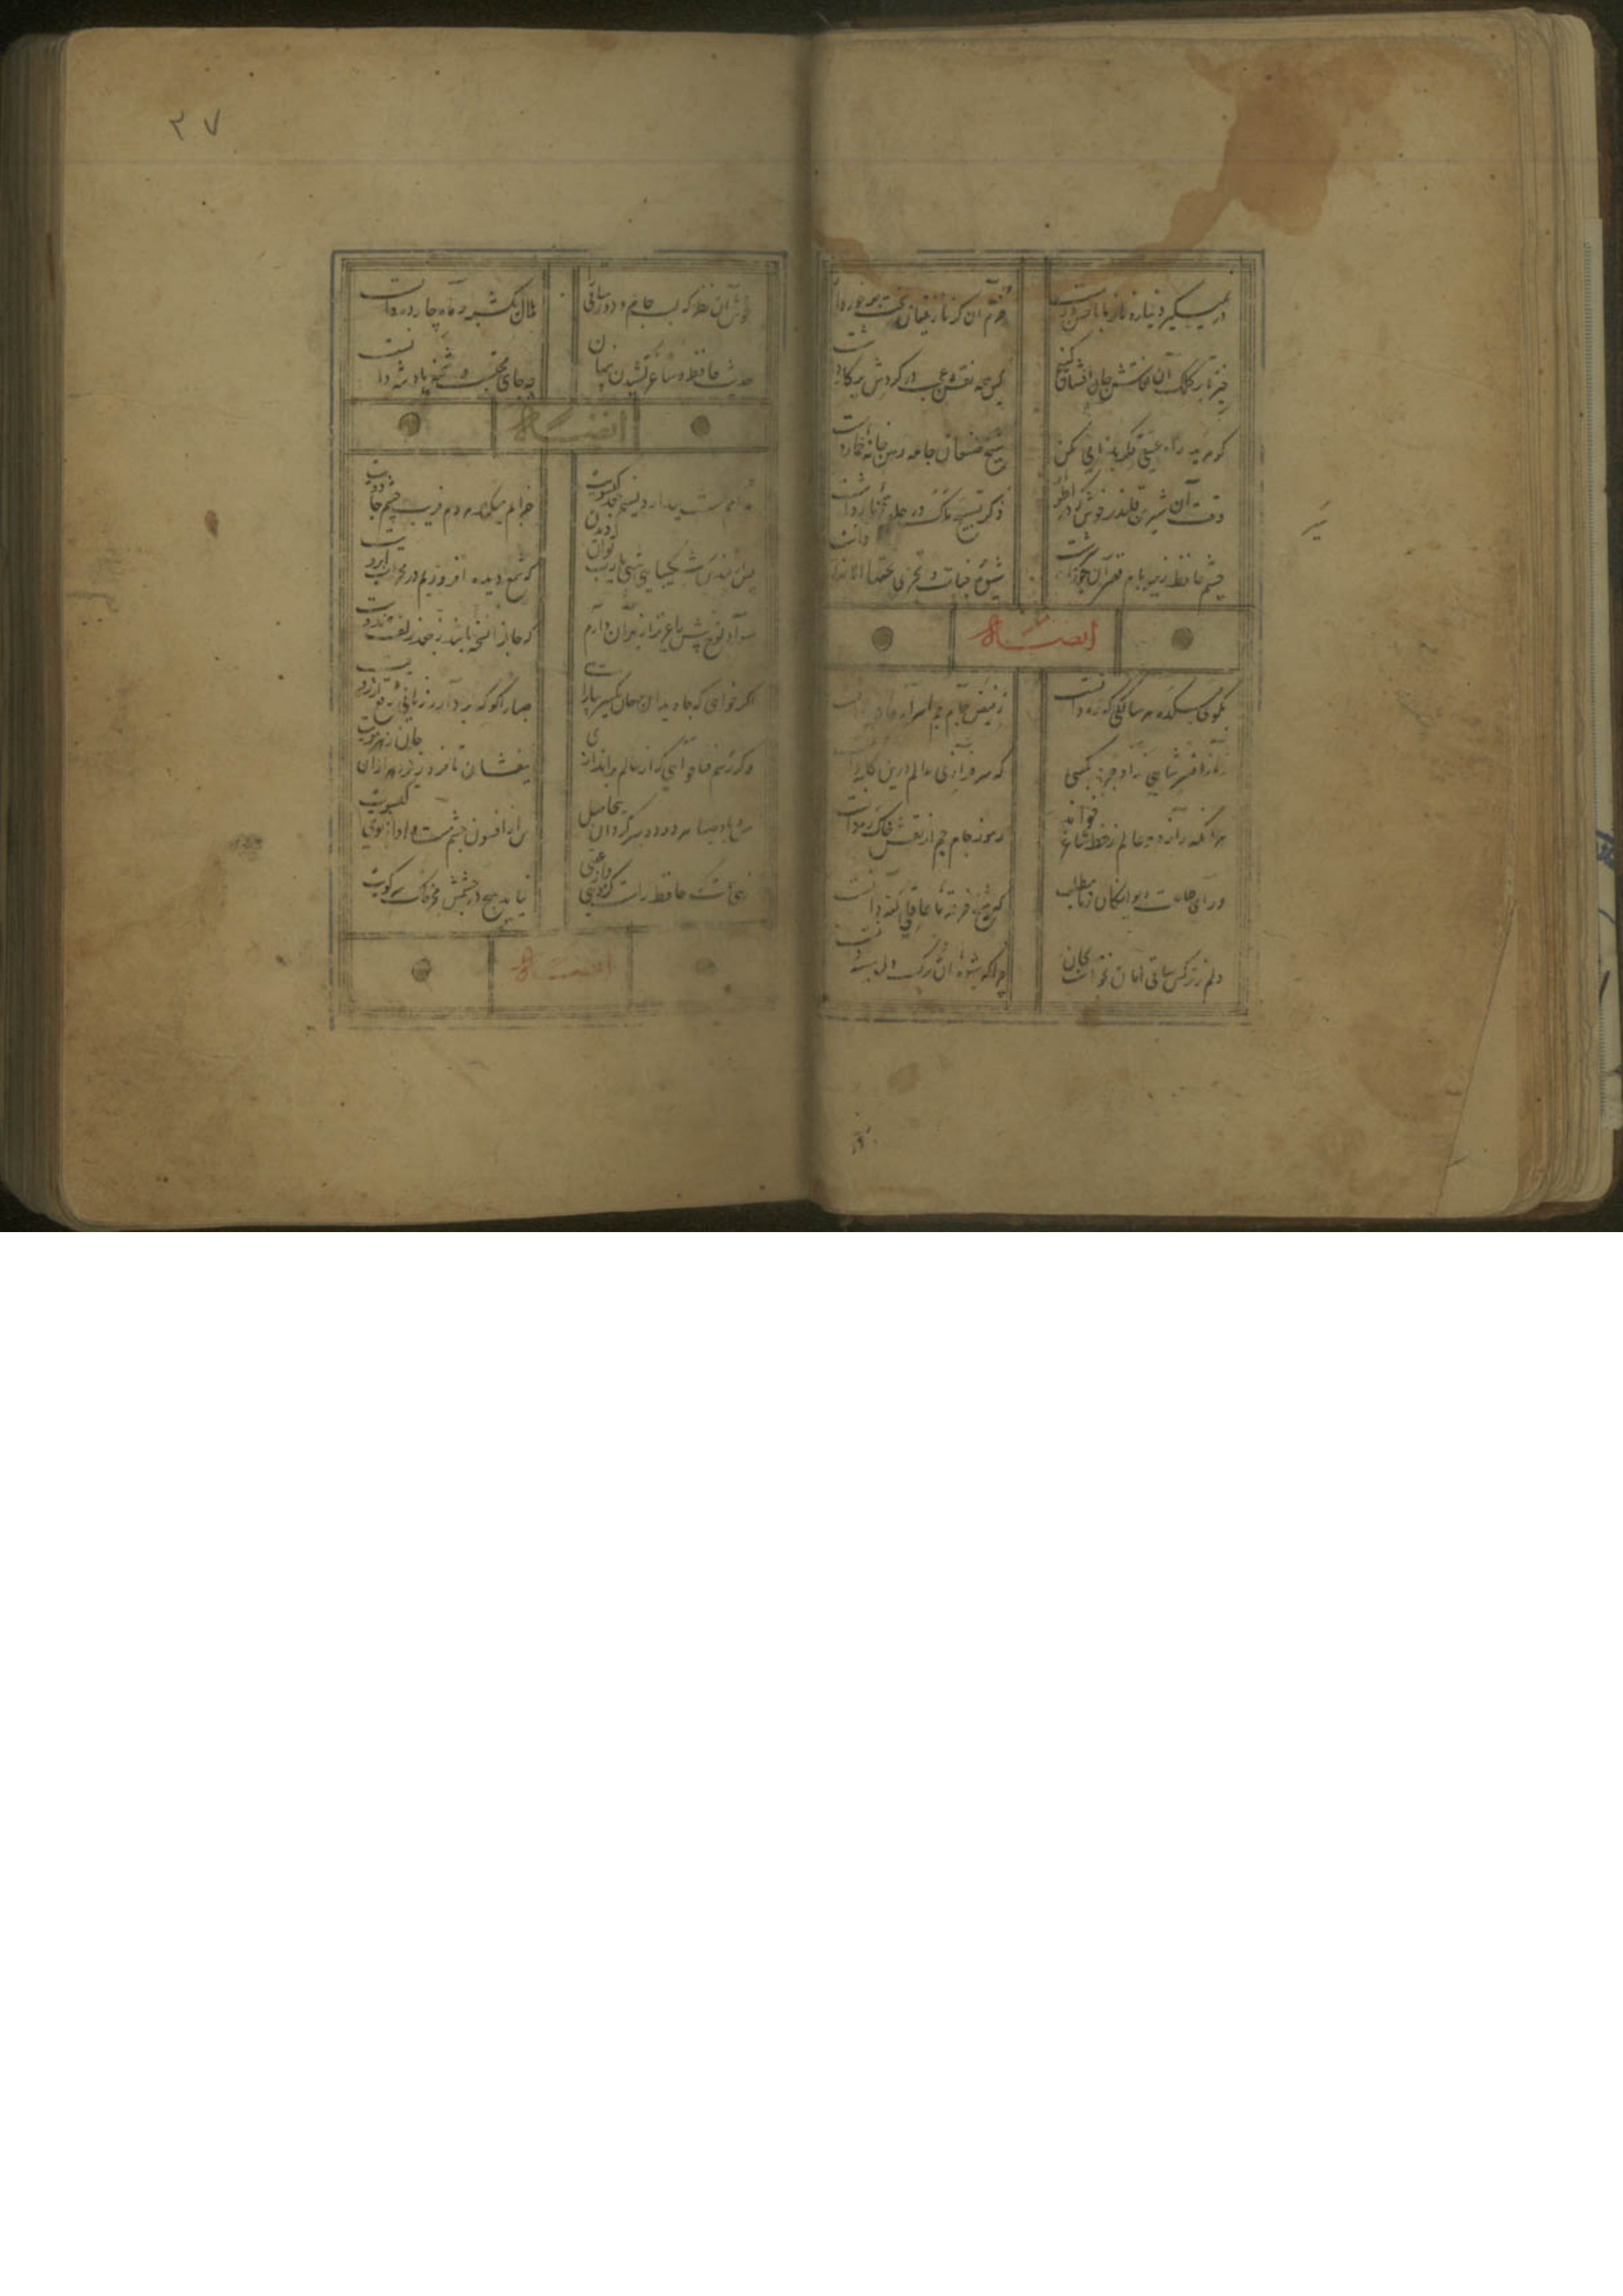 در نمیگیرد نیاز و ناز ما با حسن دوست
خرم آن کز نازنینان بخت برخوردار داشت
خیز تا بر کلک آن نقاش جان افشان کنیم
کین همه نقش عجب در گردش پرگار داشت
گر مرید راه عشقی فکر بدنامی مکن
شیخ صنعان جامه رهن خانه خمار داشت
وقت آن شیرین قلندر خوش که در اطوار
ذکر تسبیح ملک در حلقه زنار داشت
چشم حافظ زیر بام قصر آن حوری سرشت
شیوه جنات تجری تحتها الانهار داشت
ایضاً له
بکوی میکده هر سالکی که ره دانست
ز فیض جام جم اسرار
زمانه افسر شاهی نداد جز بکسی
که سرفرازی عالم درین کله
هر آنکه راز دو عالم ز خط ساغر خواند
رموز جام جم از نقش خاک ره دانست
ورای طاعت دیوانگان ز ما مطلب
که شیخ مذهب ما عاقلی گنه دانست
دلم ز نرکس ساقی امان نخواست بجان
چرا که شیوه آن ترک دل سیه دانست
۲۷
خوش آن نظر که لب جام و روی ساقی را
هلال یکشبه و ماه چارده دانست
حدیث حافظ و ساغر کشیدن پنهان
چه جای محتسب و شحنه پادشه دانست
ایضاً له
مدامم مست میدارد نسیم جعد گیسویت
خرابم میکند هر دم فریب چشم جادویت
پس از چندین شکیبایی شبی یارب توان دیدن
که شمع دیده افروزیم در محراب ابرویت
سواد لوح بینش را عزیز از بهر آن دارم
که جان را نسخه باشد ز لوح خال هندویت
اگر خواهی که جاویدان جهان یکسر بیارایی
صبا را گو که بردارد زمانی برقع از رویت
وگر رسم فنا خواهی که از عالم براندازی
بیفشان تا فرو ریزد هزاران جان ز هر مویت
من و باد صبا هر دو دو سرگردان بیحاصل
من از افسون چشم مست و او از بوی گیسویت
زهی همت که حافظ راست کز دنیی و از عقبی
نیاید هیچ در چشمش بجز خاک سر کویت
ایضاً له